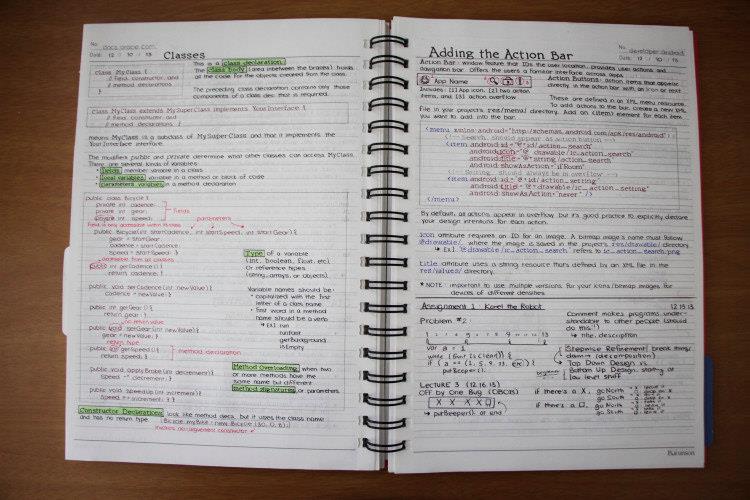 No. docs.oracle.com
Date 12 / 10 / 13
Classes
This is a class declaration.
The class body (area inbetween the braces) holds
all the code for the objects created from the class.
Class MyClass {
// field, constructor, and
// method declarations
}
The preceding class declaration contains only those
components of a class dec. that is required.
Class MyClass extends MySuperClass implements YourInterface {
// field, constructor, and
// method declarations
}
Means MyClass is a subclass of MySuperClass and that it implements the
YourInterface interface.
The modifiers public and private determine what other classes can access MyClass.
There are several kinds of variables:
• fields: member variable in a class
• local variables: variable in a method or block of code
• parameters: variables in a method declaration
public class Bicycle {
private int cadence;
private int gear;
private int speed;
fields
Field is only accessible within its class
parameters
public Bicycle(int startCadence, int startSpeed, int startGear) {
gear = startGear;
cadence = startCadence;
speed = startSpeed; }
accessible from all classes
public int getCadence() {
return cadence; }
public void setCadence (int newValue) {
cadence = newValue; }
public int getGear() {
return gear; }
no return value
public void setGear (int newValue) {
gear = newValue; }
return type
public int getSpeed() {
return speed; }
method declaration
public void applyBrake (int decrement) {
speed -= decrement; }
public void speedUp (int increment) {
speed += increment; }
Type of a variable
(int, boolean, float, etc)
or reference types
(string, arrays, or objects).
Variable names should be:
• capitalized with the first
letter of a class name
• first word in a method
name should be a verb
↳ Ex) run
runFast
getBackground
isEmpty
Method Overloading, when two
or more methods have the
same name but different
method signatures, or parameters.
Constructor Declarations look like method decs. but it uses the class name
and has no return type. Bicycle myBike = new Bicycle (30, 0, 8);
invokes no-argument constructor
Adding the Action Bar
No. developer.android
Date 12 / 10 / 13
Action Bar: window feature that IDs the user location, provides user actions and
navigation bar. Offers the users a familiar interface across apps.
App Name
Includes: (1) App icon, (2) two action
items, and (3) action overflow
Action Buttons: action items that appear
directly in the action bar with an icon or text
These are defined in an XML menu resource.
To add actions to the bar, create a new XML
file in your project's res/menu/ directory. Add an (item) element for each item
you want to add into the bar.
<menu xmlns:android="http://schemas.android.com/apk/res/android">
<!-- Search, should appear as action button -->
<item android:id="@+id/action_search"
android:icon="@drawable/ic_action_search"
android:title="@string/action_search"
android:showAsAction="ifRoom"
<!-- Setting, should always be in overflow -->
<item android:id="@+id/action_setting"
android:title="@drawable/ic_action_setting"
android:showAsAction="never" />
</menu>
By default, all actions appear in overflow, but it's good practice to explicitly declare
your design intentions for each action.
Icon attribute requires an ID for an image. A bitmap image's name must follow
@drawable/, where the image is saved in the project's res/drawable/ directory.
↳ Ex). @drawable/ic_action_search" refers to ic_action_search.png
Title attribute uses a string resource that's defined by an XML file in the
res/values/ directory.
* NOTE: important to use multiple versions for your icons/bitmap images, for
devices of different densities
Assignment 1 Karel the Robot
12.15.13
Problem #2:
var a = 1
while (frontIsClear()) {
if (a == (1, 5, 9, 13, etc)) {
putBeeper();
Comment makes programs under-
standable to other people (should
do this!!)
↳ title, description
Stepwise Refinement break things
down (decomposition)
Top Down Design vs
Bottom Up Design starting w/
low level stuff
LECTURE 3 (12.16.13)
Off By One Bug (OBOBs)
X X X X
↳ putBeepers() at end
if there's a X, go North
go South
if there's a □, go North
go South
Bananson